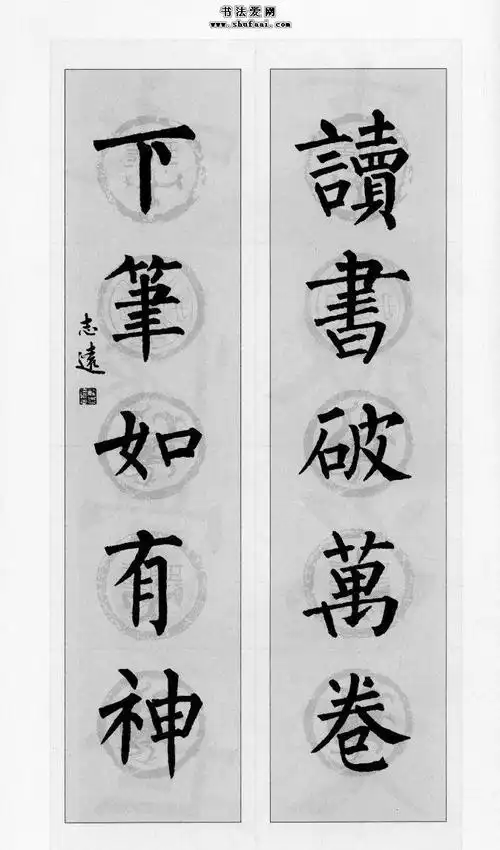 书法爱网
www.shufaai.com
讀書破萬卷
下筆如有神
志遠